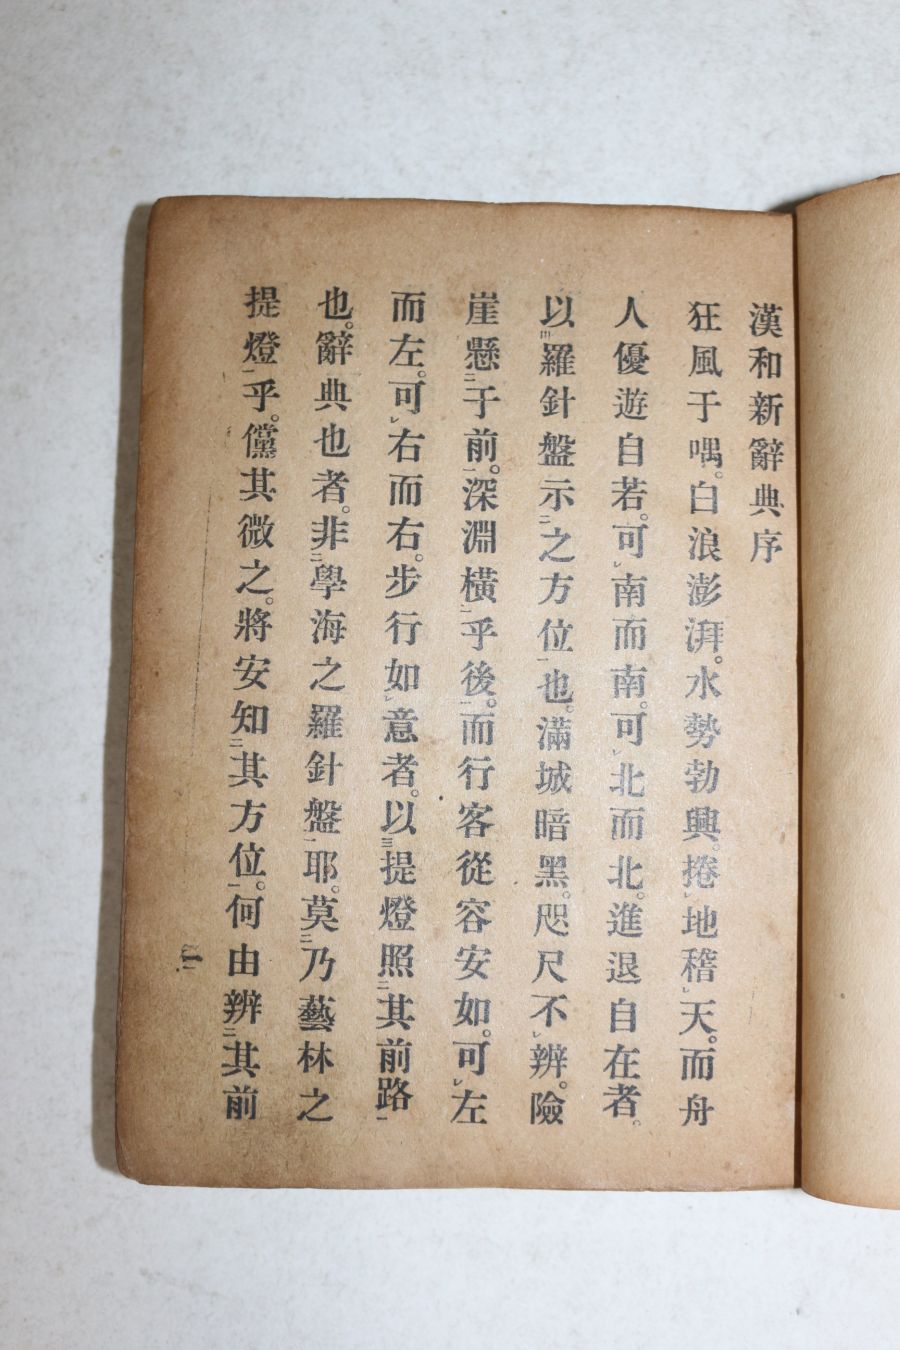 漢和新辭典序
狂風于喁。白浪澎湃。水勢勃興。捲㆑地稽㆑天。而舟
人優遊自若。可㆑南而南。可㆑北而北。進退自在者。
以㆘羅針盤示㆓之方位㆒也。滿城暗黑。咫尺不㆑辨。險
崖懸㆓于前㆒。深淵橫㆓乎後㆒。而行客從容安如。可㆑左
而左。可㆑右而右。步行如㆑意者。以㆔提燈照㆓其前路㆒
也。辭典也者。非㆓學海之羅針盤㆒耶。莫㆔乃藝林之
提燈㆒乎。儻其微之。將安知㆓其方位㆒。何由辨㆓其前